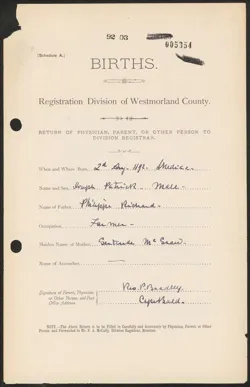 92 03
005354
(Schedule A.)
BIRTHS.
Registration Division of Westmorland County.
RETURN OF PHYSICIAN, PARENT, OR OTHER PERSON TO
DIVISION REGISTRAR.
When and Where Born, 2d
Name and Sex, Joseph Patrick - Male
Name of Father, Richard
Occupation, Farmer
Maiden Name of Mother, Gertrude Mc
Name of Accoucheur —
Signature of Parent, Physician
or Other Person, and Post
Office Address.
Bradley
NOTE.—The Above Return is to be Filled in Carefully and Accurately by Physician, Parent, or Other
Person, and Forwarded to